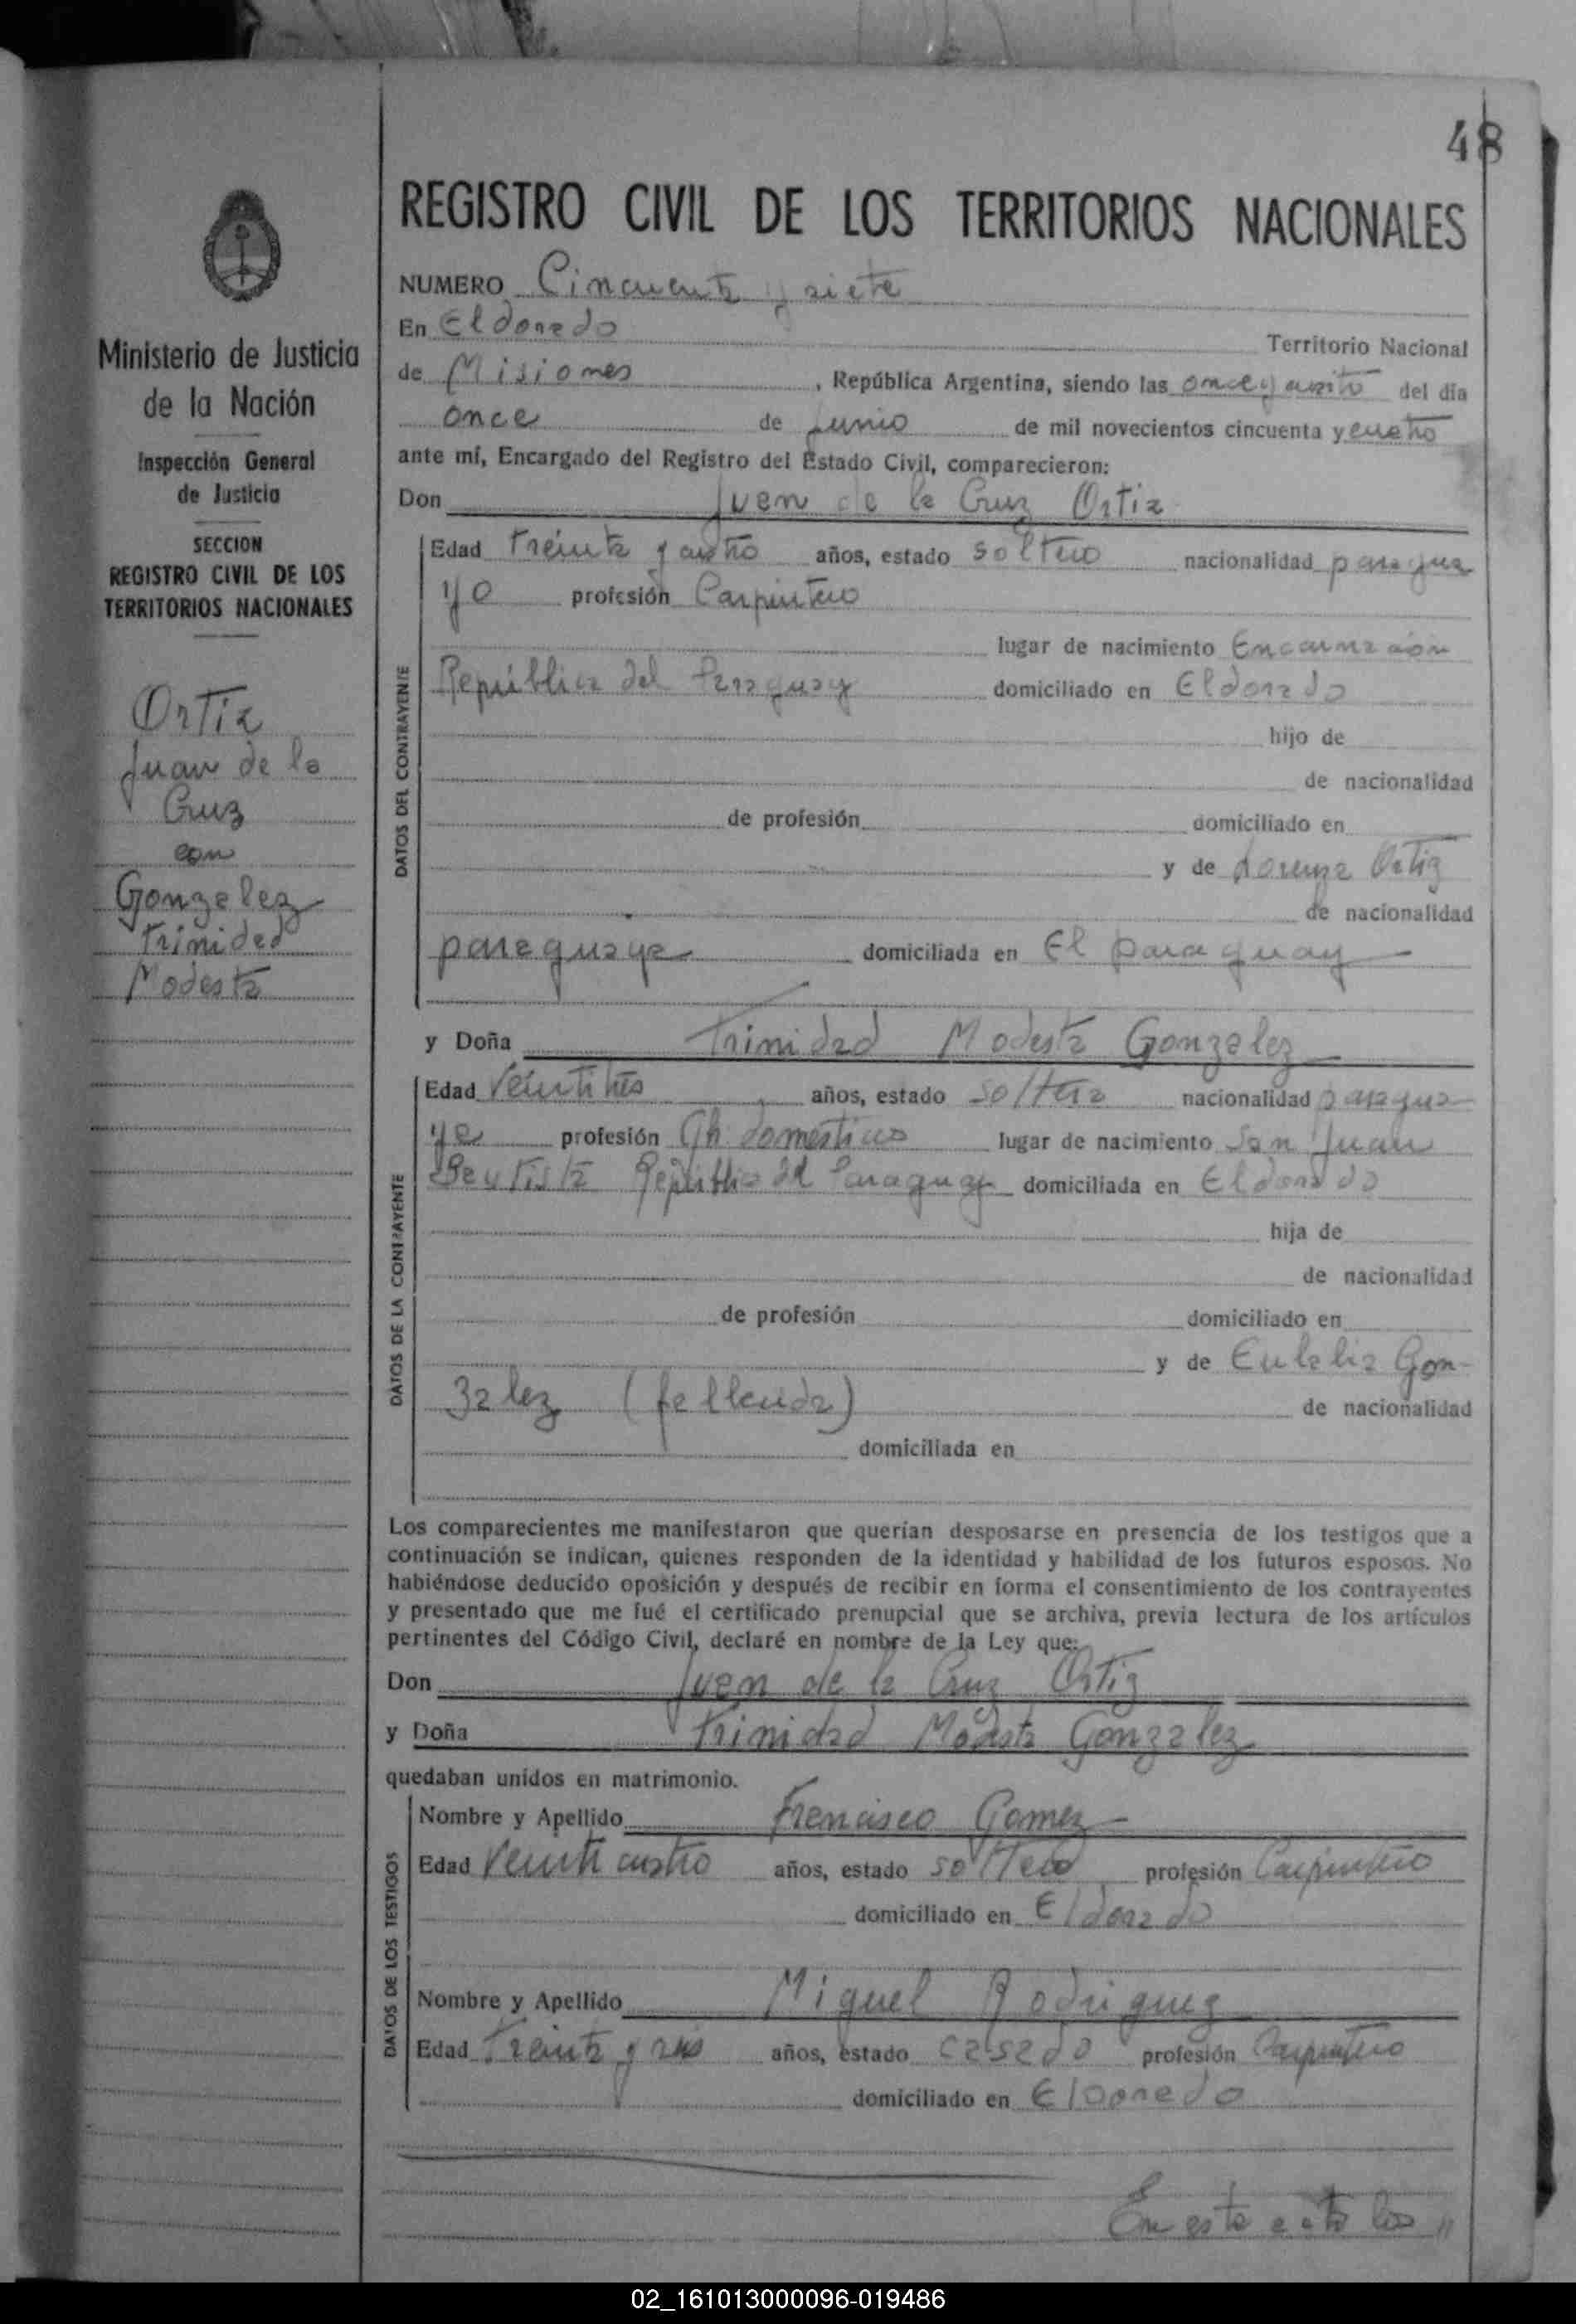 48
REGISTRO CIVIL DE LOS TERRITORIOS NACIONALES
Ministerio de Justicia
de la Nación
Inspección General
de Justicia
SECCION
REGISTRO CIVIL DE LOS
TERRITORIOS NACIONALES
Ortiz
Juan de la
Cruz
con
Gonzalez
Trinidad
Modesta
NUMERO Cincuenta y siete
En Eldorado Territorio Nacional
de Misiones, República Argentina, siendo las once y del día
once de Junio de mil novecientos cincuenta y cuatro
ante mí, Encargado del Registro del Estado Civil, comparecieron:
Don Juan de la Cruz Ortiz
DATOS DEL CONTRAYENTE
Edad Treinta y cuatro años, estado soltero nacionalidad paragua
yo profesión Carpintero
lugar de nacimiento Encarnación
República del Paraguay domiciliado en Eldorado
hijo de
de nacionalidad
de profesión domiciliado en
y de Lorenza Ortiz
de nacionalidad
paraguaya domiciliada en El paraguay
y Doña Trinidad Modesta Gonzalez
DATOS DE LA CONTRAYENTE
Edad Veintitrés años, estado soltera nacionalidad paragua
ya profesión Qh domésticos lugar de nacimiento San Juan
Bautista República del Paraguay domiciliada en Eldorado
hija de
de nacionalidad
de profesión domiciliado en
y de Eulalia Gon-
zalez (fallecida) de nacionalidad
domiciliada en
Los comparecientes me manifestaron que querían desposarse en presencia de los testigos que a
continuación se indican, quienes responden de la identidad y habilidad de los futuros esposos. No
habiéndose deducido oposición y después de recibir en forma el consentimiento de los contrayentes
y presentado que me fué el certificado prenupcial que se archiva, previa lectura de los artículos
pertinentes del Código Civil, declaré en nombre de la Ley que:
Don Juan de la Cruz Ortiz
y Doña Trinidad Modesta Gonzalez
quedaban unidos en matrimonio.
DATOS DE LOS TESTIGOS
Nombre y Apellido Francisco Gomez
Edad Veinticuatro años, estado soltero profesión Carpintero
domiciliado en Eldorado
Nombre y Apellido Miguel Rodriguez
Edad Treinta y años, estado casado profesión Carpintero
domiciliado en Eldorado
En este acto los "
02_161013000096-019486